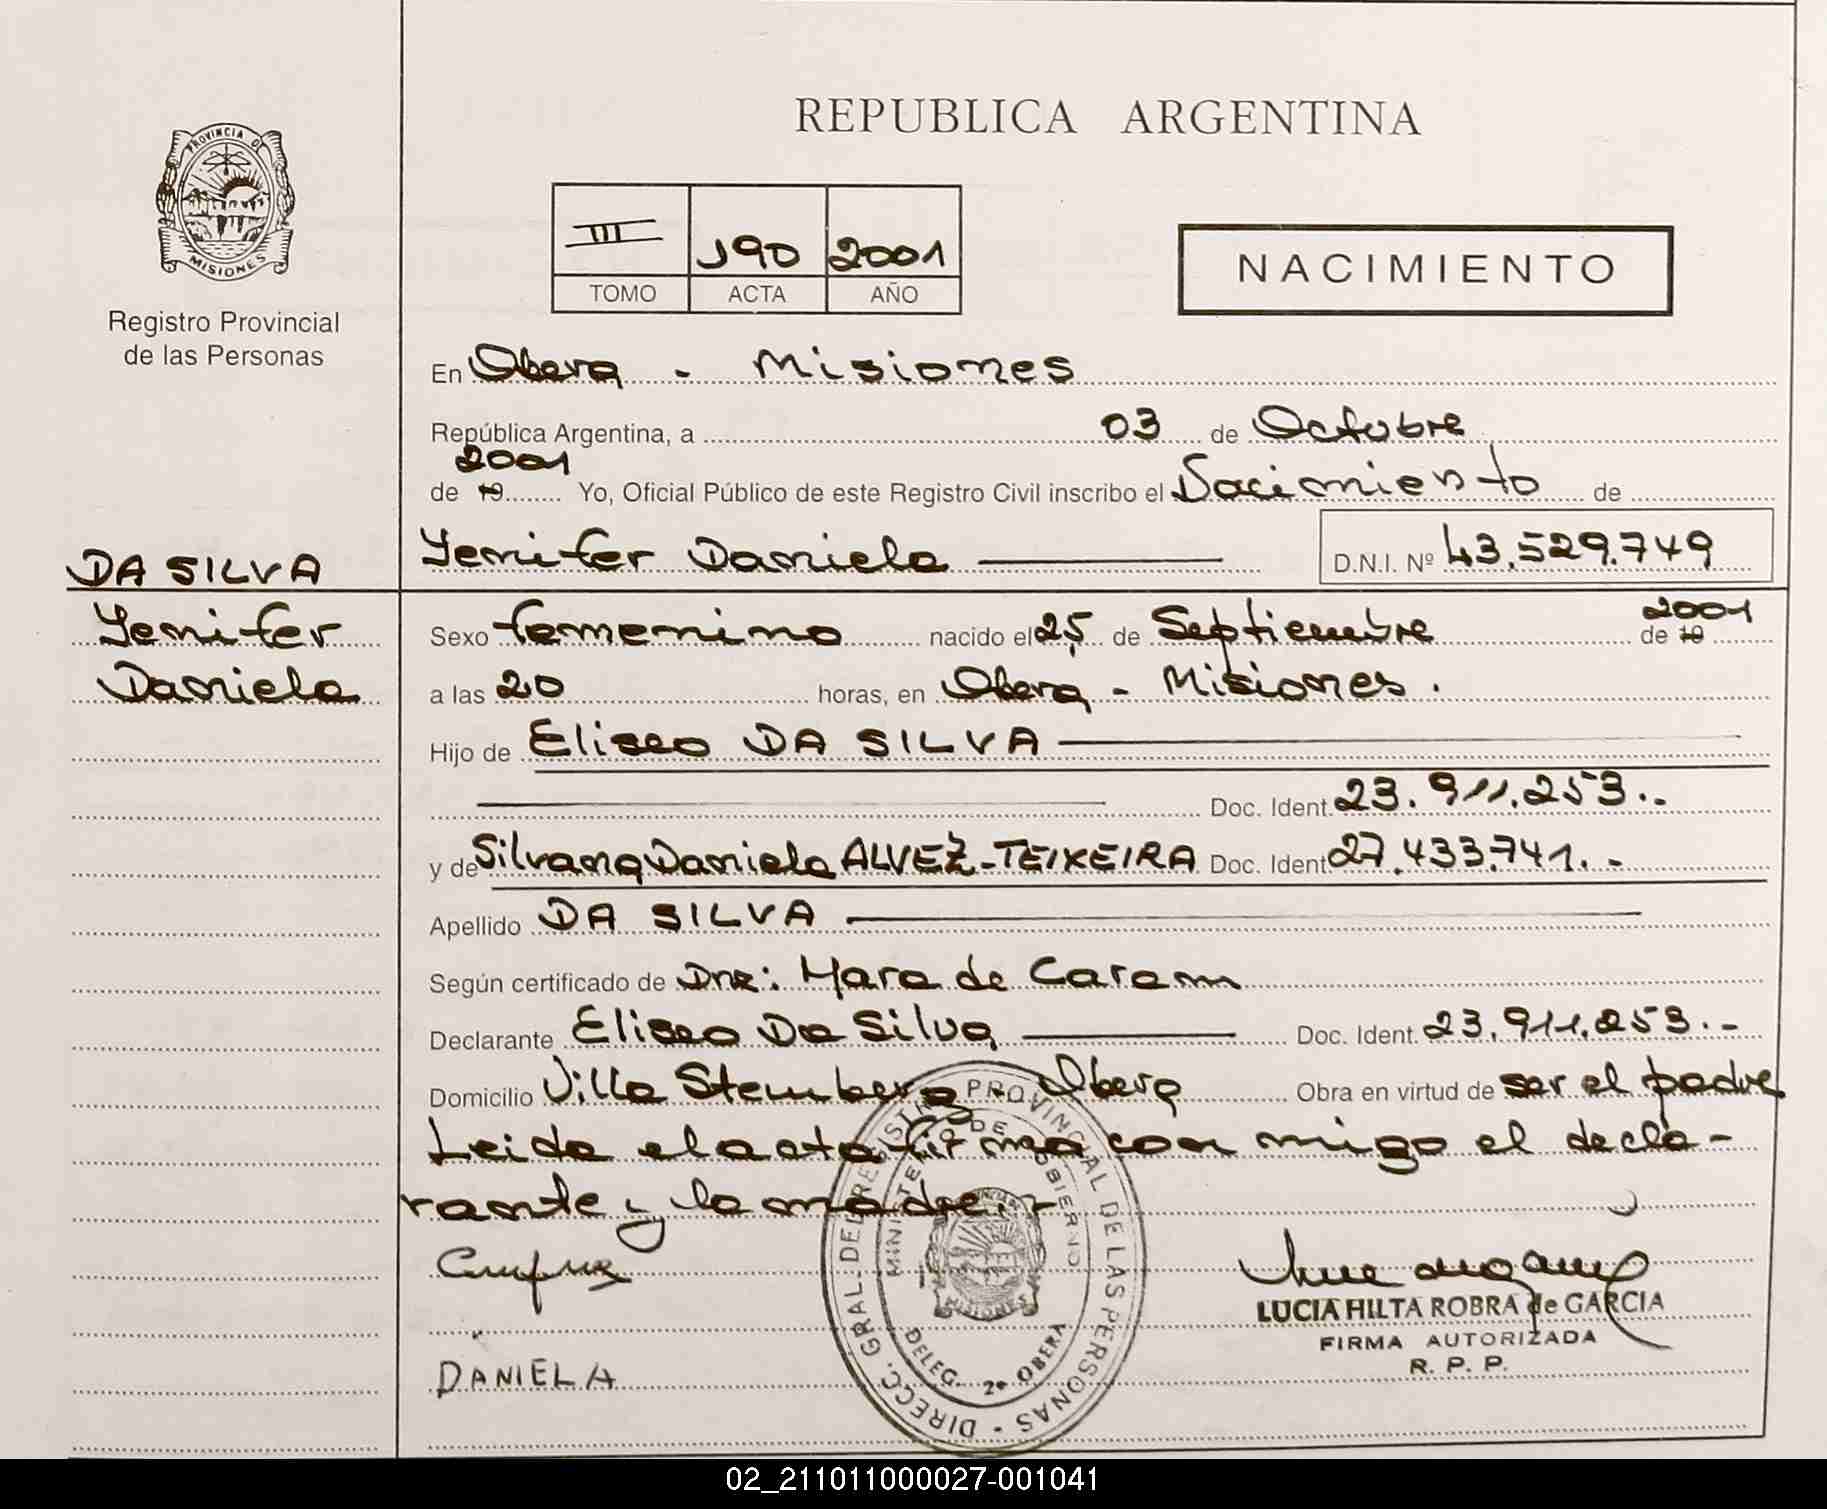 REPUBLICA ARGENTINA
PROVINCIA DE
MISIONES
Registro Provincial
de las Personas
III 190 2001
TOMO ACTA AÑO
NACIMIENTO
En Obera - Misiones
República Argentina, a 03 de Octubre
2001
de 19 Yo, Oficial Público de este Registro Civil inscribo el Nacimiento de
DA SILVA
Yenifer Daniela
D.N.I. Nº 43.529.749
Yenifer
Daniela
Sexo femenino nacido el 25 de Septiembre de 19 2001
a las 20 horas, en Obera - Misiones.
Hijo de Eliseo DA SILVA
Doc. Ident. 23.911.253.-
y de Silvana Daniela ALVEZ-TEIXEIRA Doc. Ident. 27.433.741.-
Apellido DA SILVA
Según certificado de Dra: Mara de Caram
Declarante Eliseo Da Silva Doc. Ident. 23.911.253.-
Domicilio Villa Stemberg Obera Obra en virtud de ser el padre
Leida el acta firma con migo el decla-
rante y la madre.-
LUCIA HILTA ROBRA de GARCIA
FIRMA AUTORIZADA
R. P. P.
DANIELA
DIRECC. GRAL. DEL REGISTRO PROVINCIAL DE LAS PERSONAS
MINISTERIO DE GOBIERNO
MISIONES
DELEG. 2º OBERA
02_211011000027-001041